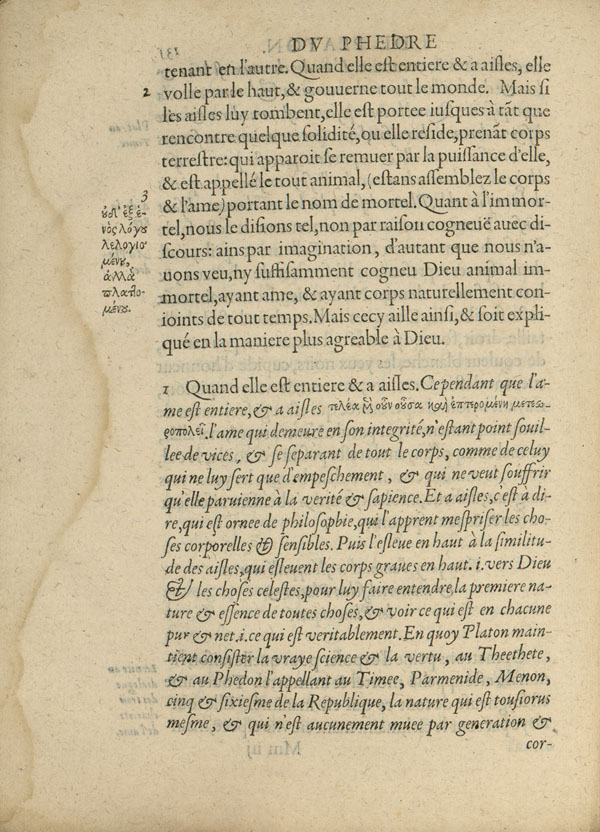 DV PHEDRE
tenant en l'autre. Quand elle est entiere & a aisles, elle
2 volle par le haut, & gouuerne tout le monde. Mais si
les aisles luy tombent, elle est portee iusques à tãt que
rencontre quelque solidité, ou elle reside, prenãt corps
terrestre: qui apparoit se remuer par la puissance d'elle,
& est appellé le tout animal, (estans assemblez le corps
3
& l'ame) portant le nom de mortel. Quant à l'immor-
tel, nous le disions tel, non par raison cogneuë auec di-
scours: ains par imagination, d'autant que nous n'a-
uons veu, ny suffisamment cogneu Dieu animal im-
mortel, ayant ame, & ayant corps naturellement con-
ioints de tout temps. Mais cecy aille ainsi, & soit expli-
qué en la maniere plus agreable à Dieu.
οὐδ' ἐξ ἑ-
νὸς λόγου
λελογισ-
μένου,
ἀλλὰ
πλαττο-
μένου.
1 Quand elle est entiere & a aisles. Cependant que l'a-
me est entiere, & a aisles τελέα μὲν οὖν οὖσα καὶ ἐπτερομένη μετεω-
ροπολεῖ. l'ame qui demeure en son integrité, n'estant point souil-
lee de vices, & se separant de tout le corps, comme de celuy
qui ne luy sert que d'empeschement, & qui ne veut souffrir
qu'elle paruienne à la verité & sapience. Et a aisles, c'est à di-
re, qui est ornee de philosophie, qui l'apprent mespriser les cho-
ses corporelles & sensibles. Puis l'esleue en haut à la similitu-
de des aisles, qui esleuent les corps graues en haut. i. vers Dieu
& les choses celestes, pour luy faire entendre, la premiere na-
ture & essence de toutes choses, & voir ce qui est en chacune
pur & net. i. ce qui est veritablement. En quoy Platon main-
tient consister la vraye science & la vertu, au Theethete,
& au Phedon l'appellant au Timee, Parmenide, Menon,
cinq & sixiesme de la Republique, la nature qui est tousiorus
mesme, & qui n'est aucunement muee par generation &
cor-